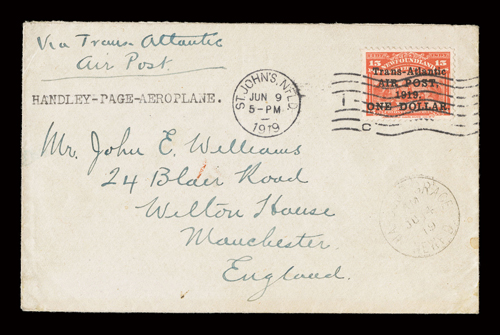 Via Trans-Atlantic
Air Post.
HANDLEY-PAGE-AEROPLANE.
ST. JOHN'S, NFLD.
JUN 9
5-PM
1919
15 NEWFOUNDLAND 15
Trans-Atlantic
AIR POST,
1919,
ONE DOLLAR.
Mr. John E. Williams
24 Blair Road
Wilton House
Manchester.
England.